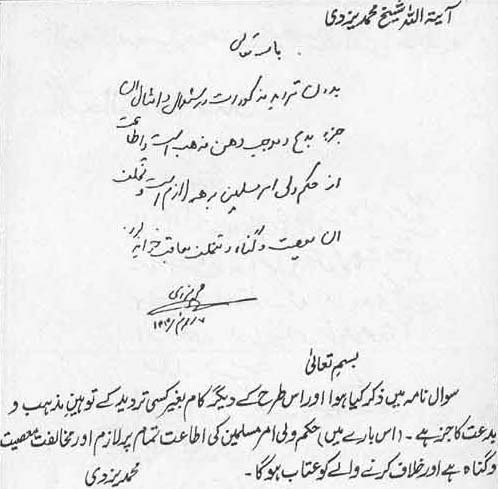 آیۃ اللہ شیخ محمد یزدی
باسمه تعالی
بدون تردید مذکورات در سئوال و امثال آن
جزء بدع و موجب وهن مذهب است و اطاعت
از حکم ولی امر مسلمین بر همه لازم است و تخلف
آن معصیت و گناه و متخلف معاقب خواهد بود
محمد یزدی
بسمہ تعالیٰ
سوال نامہ میں ذکر کیا ہوا اور اس طرح کے دیگر کام بغیر کسی تردید کے توہینِ مذہب و
بدعت کا جز ہے ۔ (اس بارے میں) حکم ولی امر مسلمین کی اطاعت تمام پر لازم اور مخالفت معصیت
و گناہ ہے اور خلاف کرنے والے کو عتاب ہوگا ۔ محمد یزدی